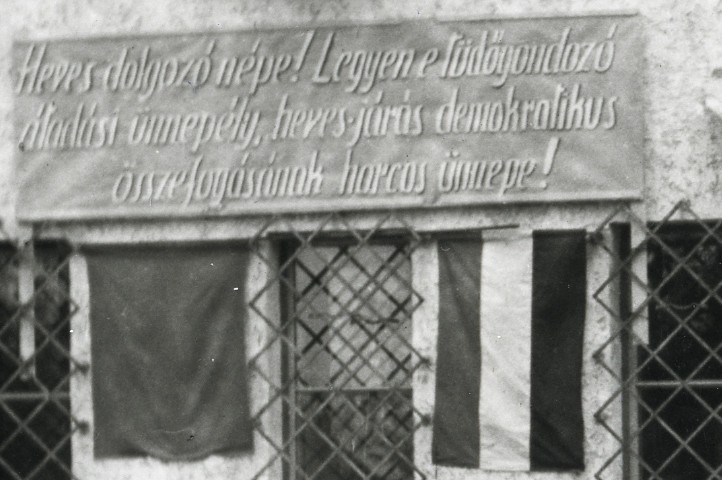 Heves dolgozó népe! Legyen e tüdőgondozó
átadási ünnepély, heves-járás demokratikus
összefogásának harcos ünnepe!